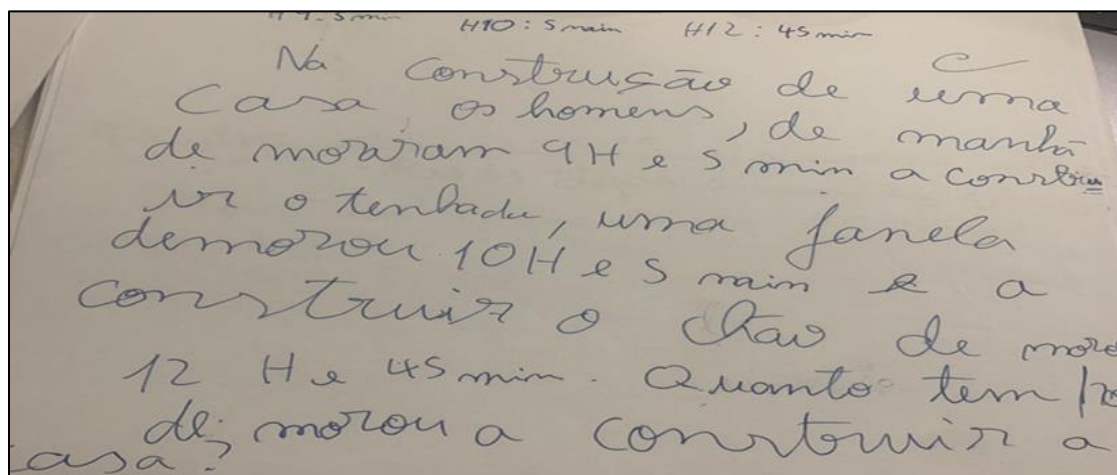 5 min H10 : 5 main H12 : 45 min
Na construção de uma
casa os homens, de manhã
de moraram 9H e 5 min a constru
ir o tenhado, uma janela
demorou 10H e 5 main e a
construir o chão de moro
12 H e 45 min. Quanto tem po
de morou a construir a
casa?